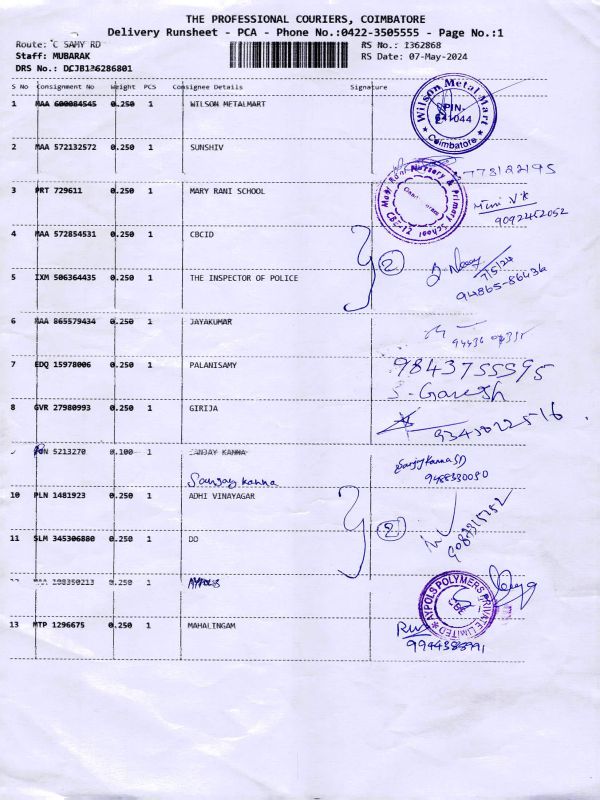 THE PROFESSIONAL COURIERS, COIMBATORE
Delivery Runsheet - PCA - Phone No.:0422-3505555 - Page No.:1
Route: C SAMY RD
RS No.: 1362868
Staff: MUBARAK
RS Date: 07-May-2024
DRS No.: DCJB136286801
S No Consignment No Weight PCS Consignee Details Signature
1 MAA 600084545 0.250 1 WILSON METALMART
Wilson Metal Mart PIN- 641044 Coimbatore
2 MAA 572132572 0.250 1 SUNSHIV
773122195
3 PRT 729611 0.250 1 MARY RANI SCHOOL
Mary Rani Nursery & Primary School CBE-12
9092452052
4 MAA 572854531 0.250 1 CBCID
2
7/5/24
94865-86436
5 IXM 506364435 0.250 1 THE INSPECTOR OF POLICE
6 MAA 865579434 0.250 1 JAYAKUMAR
7 EDQ 15978006 0.250 1 PALANISAMY
9843755595
S-Ganesh
8 GVR 27980993 0.250 1 GIRIJA
9345022516
5213270 0.100 1 SANJAY KANNA
Sanjay kanna
Sanjay Kanna SD
9488330030
10 PLN 1481923 0.250 1 ADHI VINAYAGAR
2
9087315252
11 SLM 345306880 0.250 1 DD
MAA 198350213 0.250 1 AYPOLS
AYPOLS POLYMERS PRIVATE LIMITED CBE
13 MTP 1296675 0.250 1 MAHALINGAM
9944383991